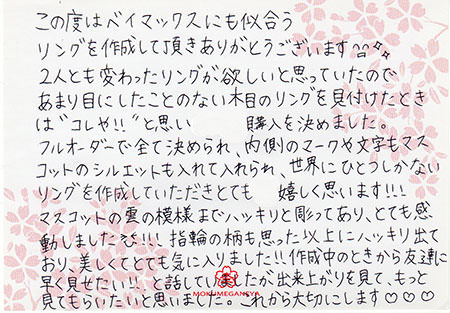 この度はベイマックスにも似合う
リングを作成して頂きありがとうございます
2人とも変わったリングが欲しいと思っていたので
あまり目にしたことのない木目のリングを見付けたとき
は"コレや!!"と思い 購入を決めました。
フルオーダーで全て決められ、内側のマークや文字もマス
コットのシルエットも入れて入れられ、世界にひとつしかない
リングを作成していただきとても 嬉しく思います!!!
マスコットの雲の模様までハッキリと彫ってあり、とても感
動しました!!! 指輪の柄も思った以上にハッキリ出て
おり、美しくてとても気に入りました!! 作成中のときから友達に
早く見せたい!! と話していましたが出来上がりを見て、もっと
見てもらいたいと思いました。これから大切にします♡♡♡
MOKUMEGANEYA